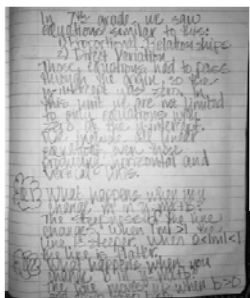 In 7th grade, we saw
equations similar to this:
1) Proportional Relationships
2) Direct Variation
Those equations had to pass
through the origin, so the
y-intercept was zero. In
this unit we are not limited
to only equations with
zero as the y-intercept.
producing horizontal and
vertical lines.
What happens when you
change "m" in
The steepness of the line
changes. When |m|>1 the
line is steeper. When 0<|m|<1
the line is flatter.
What happens when you
change
The line moves up when b>0